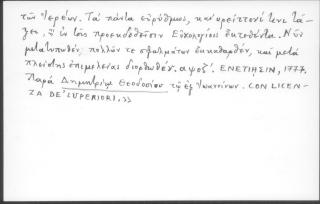 τῶν Ἱερέων. Τὰ πάντα εὐρύθμως, καὶ κρείττονί τινι τά-
ξει, ἢ ἐν τοῖς προεκδοθεῖσιν Εὐχολογίοις ἐκτεθέντα. Νῦν
μετατυπωθέν, πολλῶν τε σφαλμάτων ἐκκαθαρθέν, καὶ μετὰ
πλείστης ἐπιμελείας διορθωθέν. αψοζ΄. ΕΝΕΤΙΗΣΙΝ, 1777.
Παρὰ Δημητρίῳ Θεοδοσίου τῷ ἐξ Ἰωαννίνων. CON LICEN-
ZA DE' SUPERIORI.»